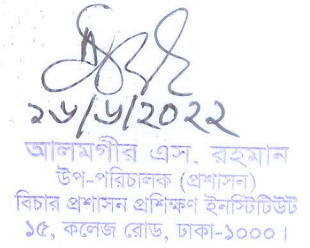 ১৬/৬/2022
আলমগীর এস. রহমান
উপ-পরিচালক (প্রশাসন)
বিচার প্রশাসন প্রশিক্ষণ ইনস্টিটিউট
১৫, কলেজ রোড, ঢাকা-১০০০।